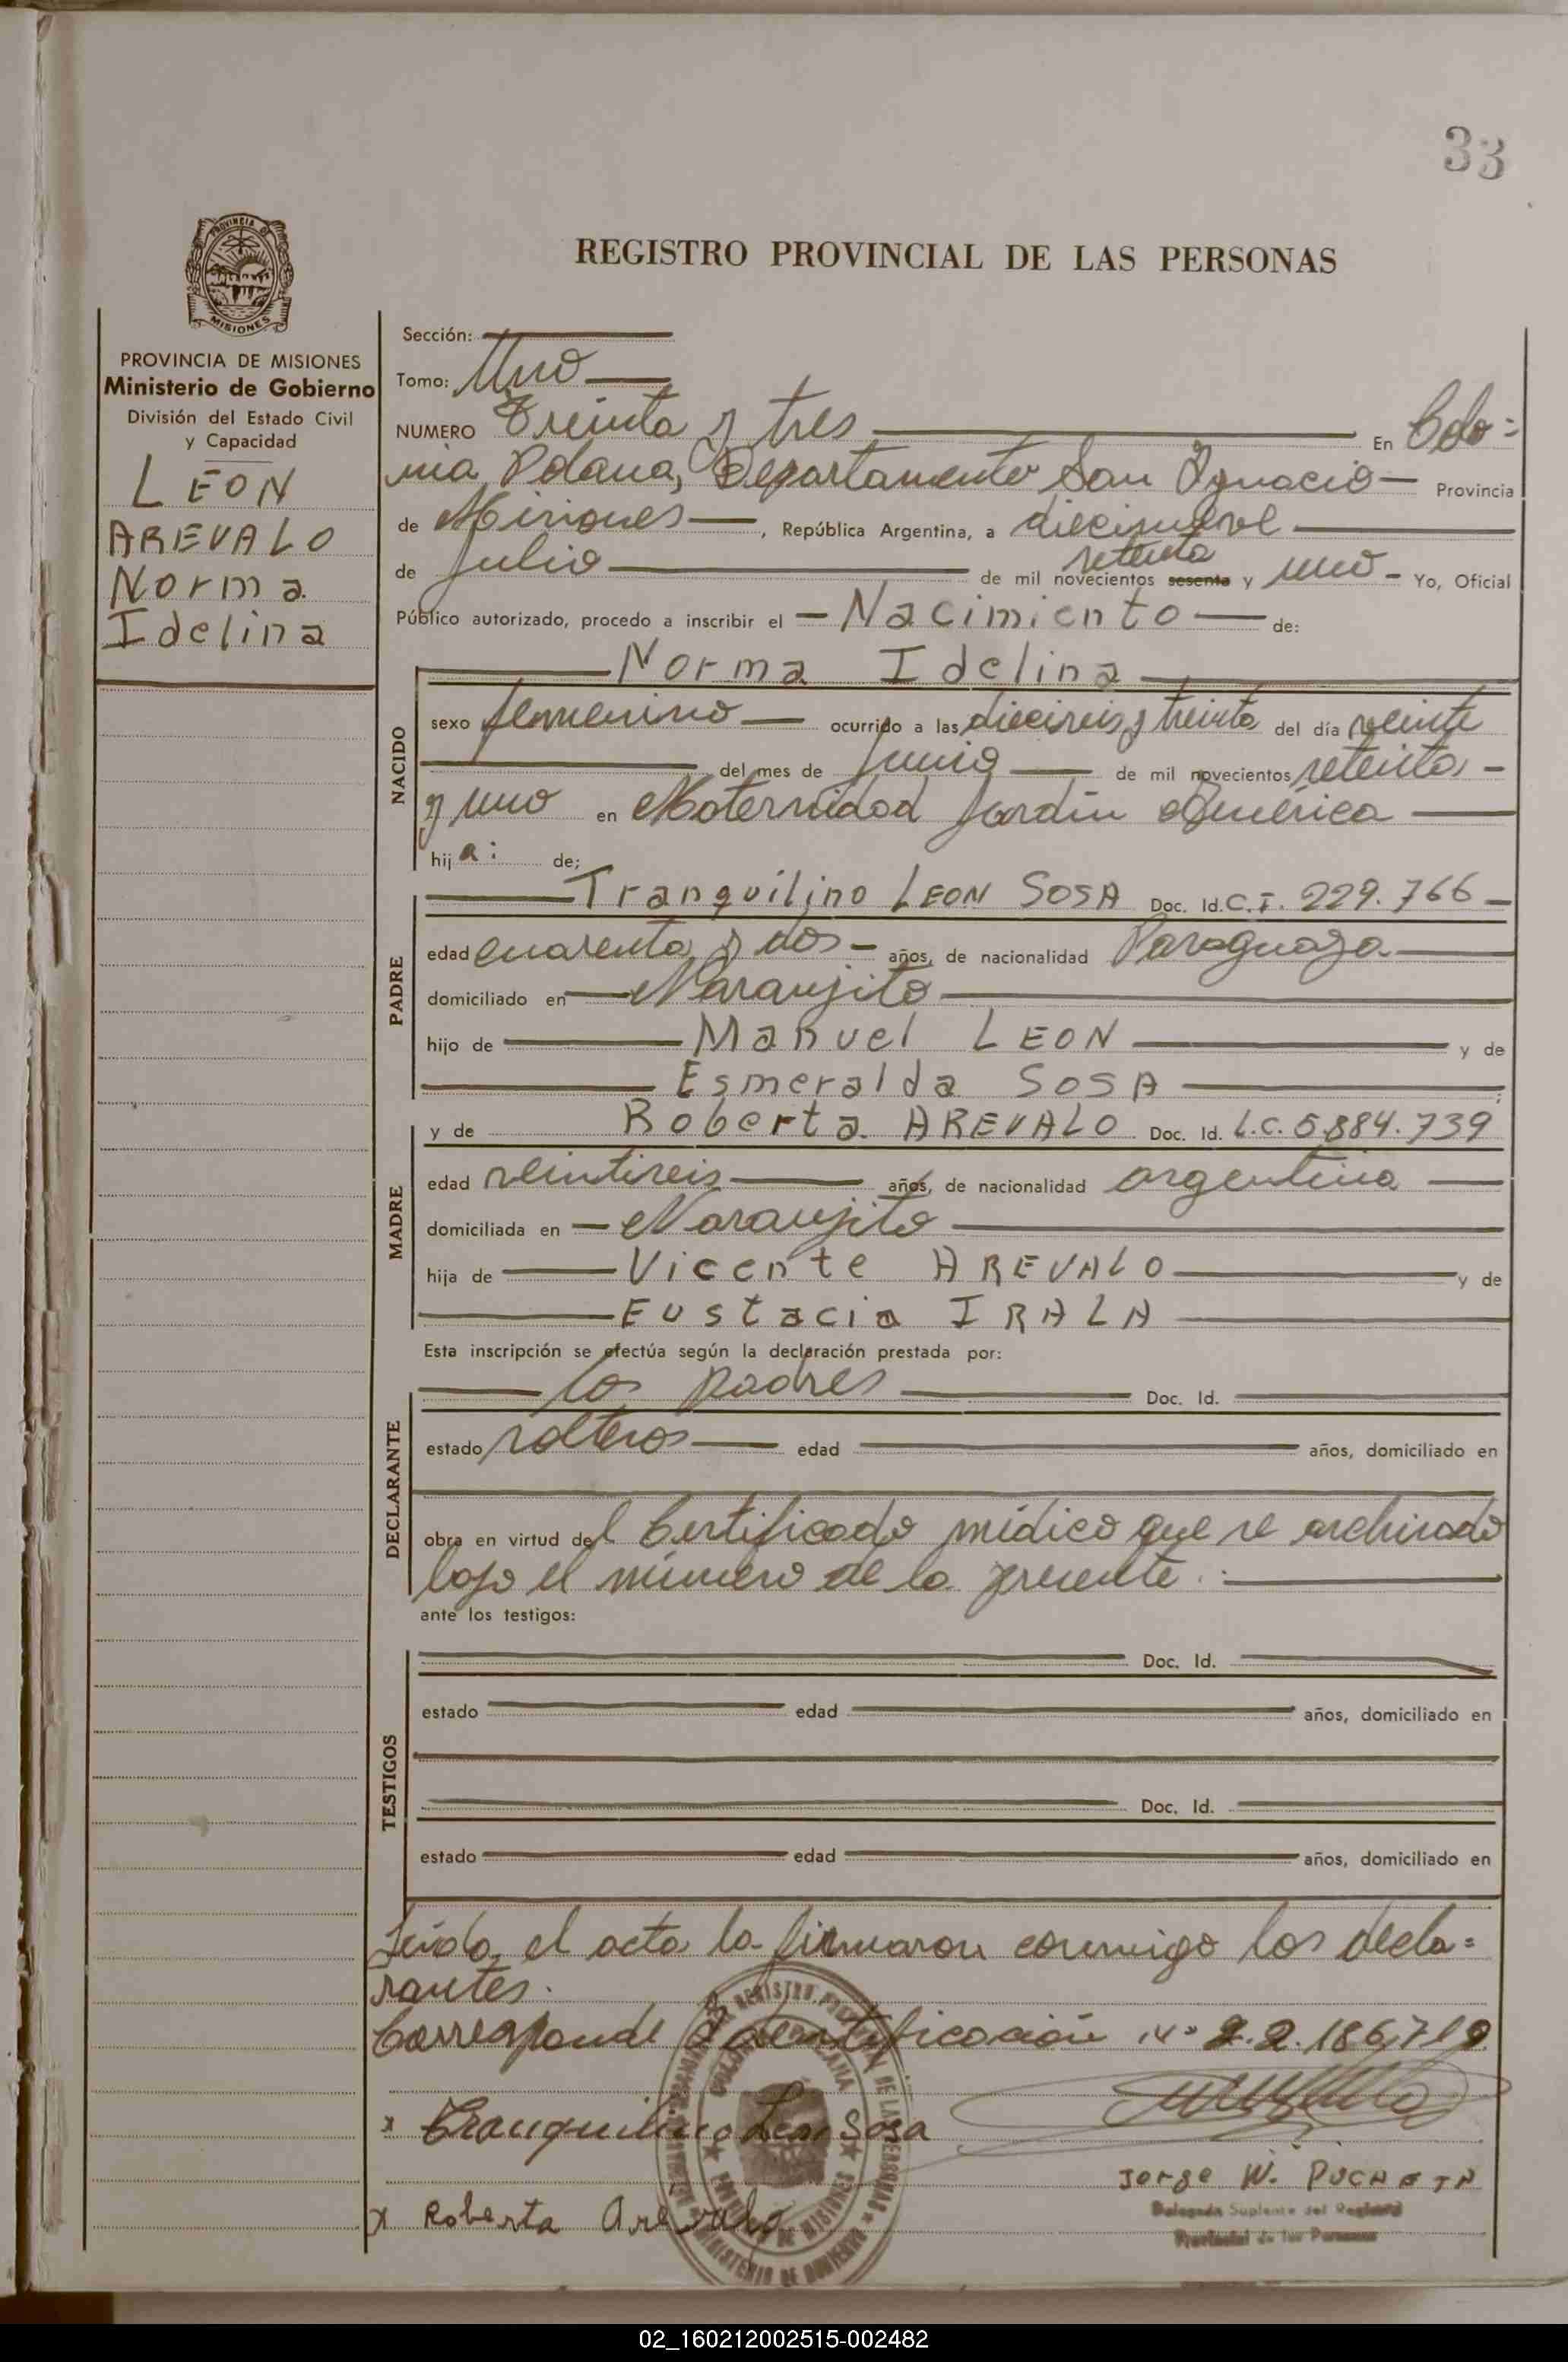 33
PROVINCIA DE
MISIONES
REGISTRO PROVINCIAL DE LAS PERSONAS
PROVINCIA DE MISIONES
Ministerio de Gobierno
División del Estado Civil
y Capacidad
LEON
AREVALO
Norma
Idelina
Sección:
Tomo: Uno
NUMERO Treinta y tres En Colo=
nia Polana, Departamento San Ignacio Provincia
de Misiones, República Argentina, a diecinueve
de Julio de mil novecientos sesenta setenta y uno Yo, Oficial
Público autorizado, procedo a inscribir el Nacimiento de:
NACIDO
Norma Idelina
sexo femenino ocurrido a las dieciseis y treinta del día veinte
del mes de Junio de mil novecientos setenta
y uno en Maternidad Jardín América
hija: de:
PADRE
Tranquilino LEON SOSA Doc. Id. C.I. 229.766
edad cuarenta y dos años, de nacionalidad Paraguaya
domiciliado en Naranjito
hijo de Manuel LEON y de
Esmeralda SOSA
MADRE
y de Roberta AREVALO Doc. Id. L.C. 5.884.739
edad veintiseis años, de nacionalidad argentina
domiciliada en Naranjito
hija de Vicente AREVALO y de
Eustacia IRALA
Esta inscripción se efectúa según la declaración prestada por:
DECLARANTE
los padres Doc. Id.
estado solteros edad años, domiciliado en
obra en virtud del Certificado médico que se archivado
bajo el número de la presente.
ante los testigos:
TESTIGOS
Doc. Id.
estado edad años, domiciliado en
Doc. Id.
estado edad años, domiciliado en
Leída el acta la firmaron conmigo los decla=
rantes.
Corresponde Identificación Nº 22.186.719
x Tranquilino Leon Sosa
Jorge W.
Delegado Suplente del Registro
Provincial de las Personas
x Roberta Arevalo
02_160212002515-002482